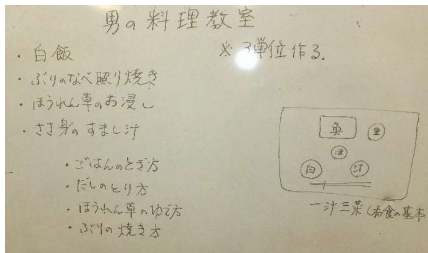 男の料理教室
・白飯
※3単位作る.
・ぶりのなべ照り焼き
・ほうれん草のお浸し
・ささ身のすまし汁
・ごはんのとぎ方
・だしのとり方
・ほうれん草のゆで方
・ぶりの焼き方
魚
里
白
汁
一汁三菜(和食の基本